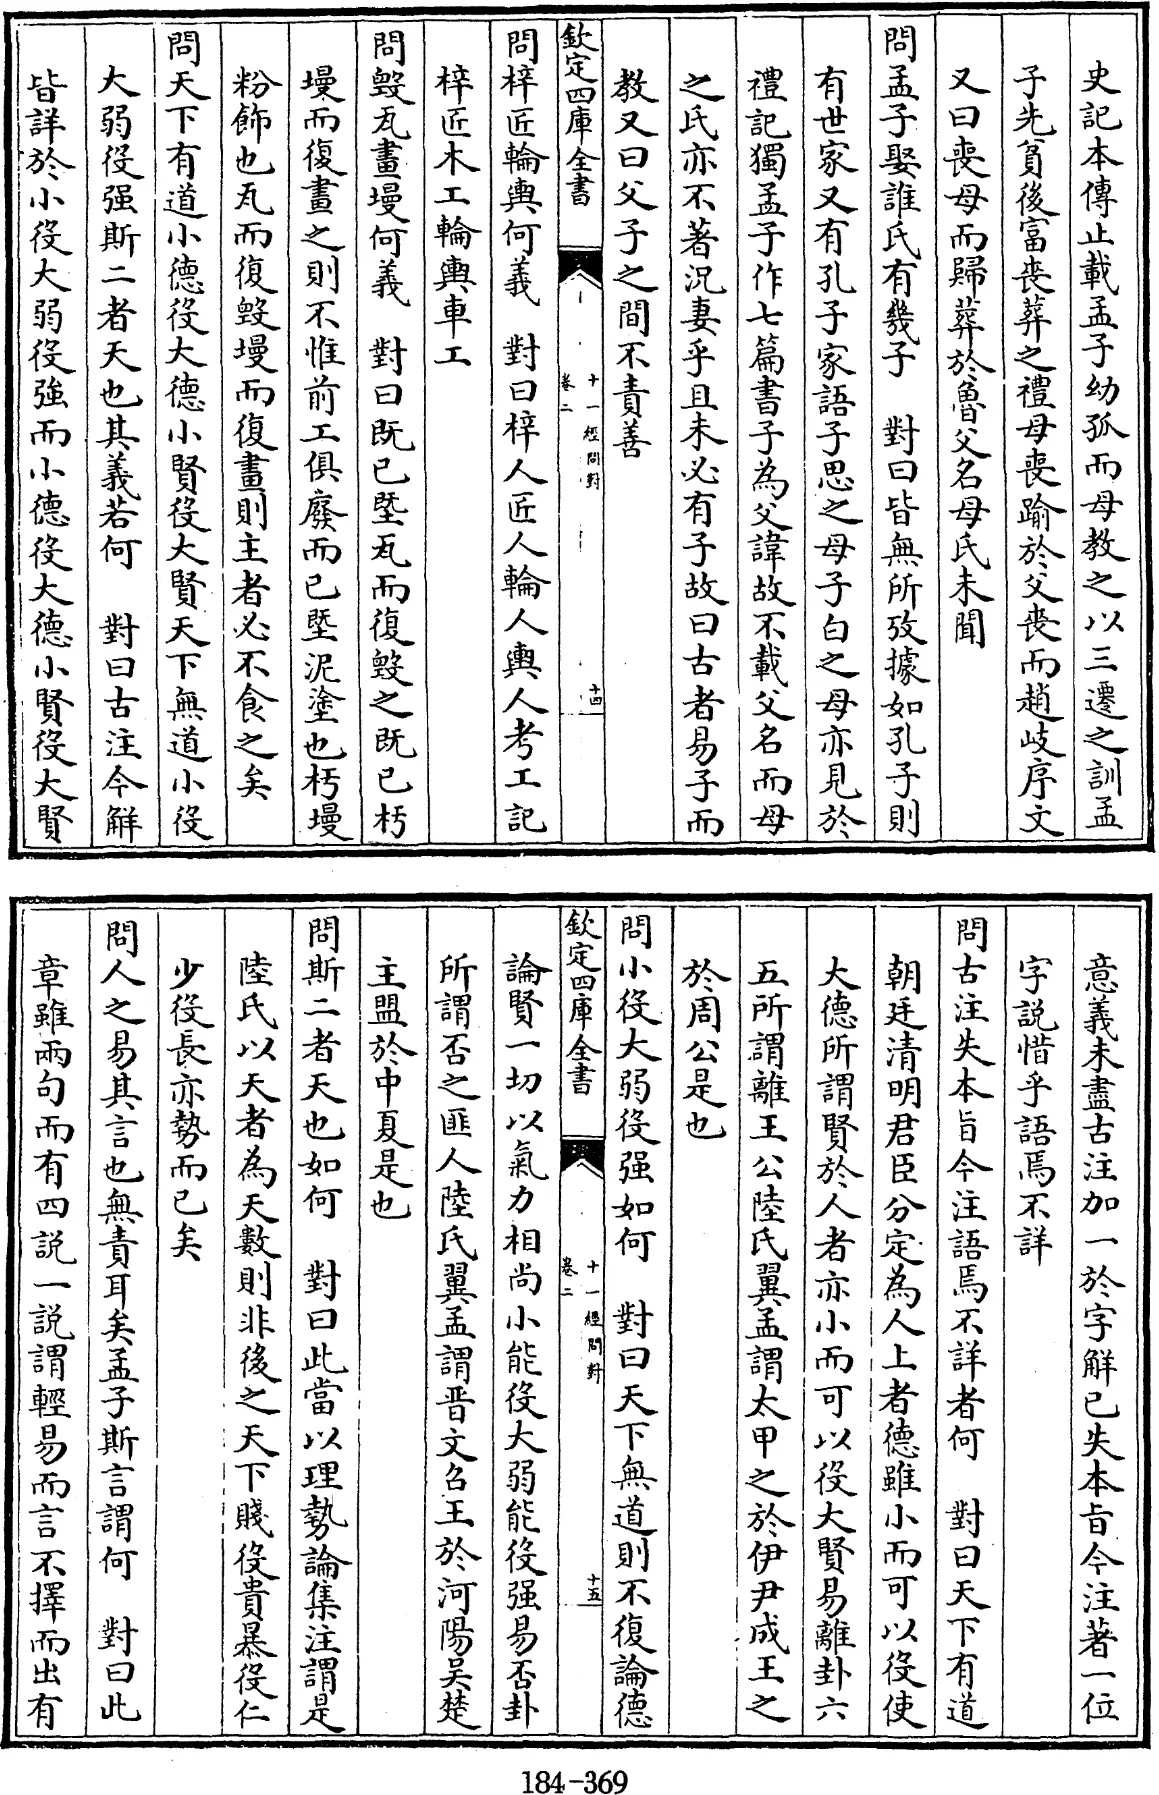 史記本傳止載孟子幼孤而母教之以三遷之訓孟
子先貧後富喪葬之禮母喪踰於父喪而趙岐序文
又曰喪母而歸葬於魯父名母氏未聞
問孟子娶誰氏有幾子　對曰皆無所攷據如孔子則
有世家又有孔子家語子思之母子白之母亦見於
禮記獨孟子作七篇書子為父諱故不載父名而母
之氏亦不著況妻乎且未必有子故曰古者易子而
教又曰父子之間不責善
欽定四庫全書
十一經問對
卷二
十四
問梓匠輪輿何義　對曰梓人匠人輪人輿人考工記
梓匠木工輪輿車工
問毀瓦畫墁何義　對曰既已墍瓦而復毀之既已杇
墁而復畫之則不惟前工俱廢而已墍泥塗也杇墁
粉飾也瓦而復毀墁而復畫則主者必不食之矣
問天下有道小德役大德小賢役大賢天下無道小役
大弱役强斯二者天也其義若何　對曰古注今解
皆詳於小役大弱役強而小德役大德小賢役大賢
意義未盡古注加一於字解已失本旨今注著一位
字説惜乎語焉不詳
問古注失本旨今注語焉不詳者何　對曰天下有道
朝廷清明君臣分定為人上者德雖小而可以役使
大德所謂賢於人者亦小而可以役大賢易離卦六
五所謂離王公陸氏翼孟謂太甲之於伊尹成王之
於周公是也
問小役大弱役强如何　對曰天下無道則不復論德
欽定四庫全書
十一經問對
卷二
十五
論賢一切以氣力相尚小能役大弱能役强易否卦
所謂否之匪人陸氏翼孟謂晋文召王於河陽吴楚
主盟於中夏是也
問斯二者天也如何　對曰此當以理勢論集注謂是
陸氏以天者為天數則非後之天下賤役貴暴役仁
少役長亦勢而已矣
問人之易其言也無責耳矣孟子斯言謂何　對曰此
章雖兩句而有四説一説謂輕易而言不擇而出有
184-369